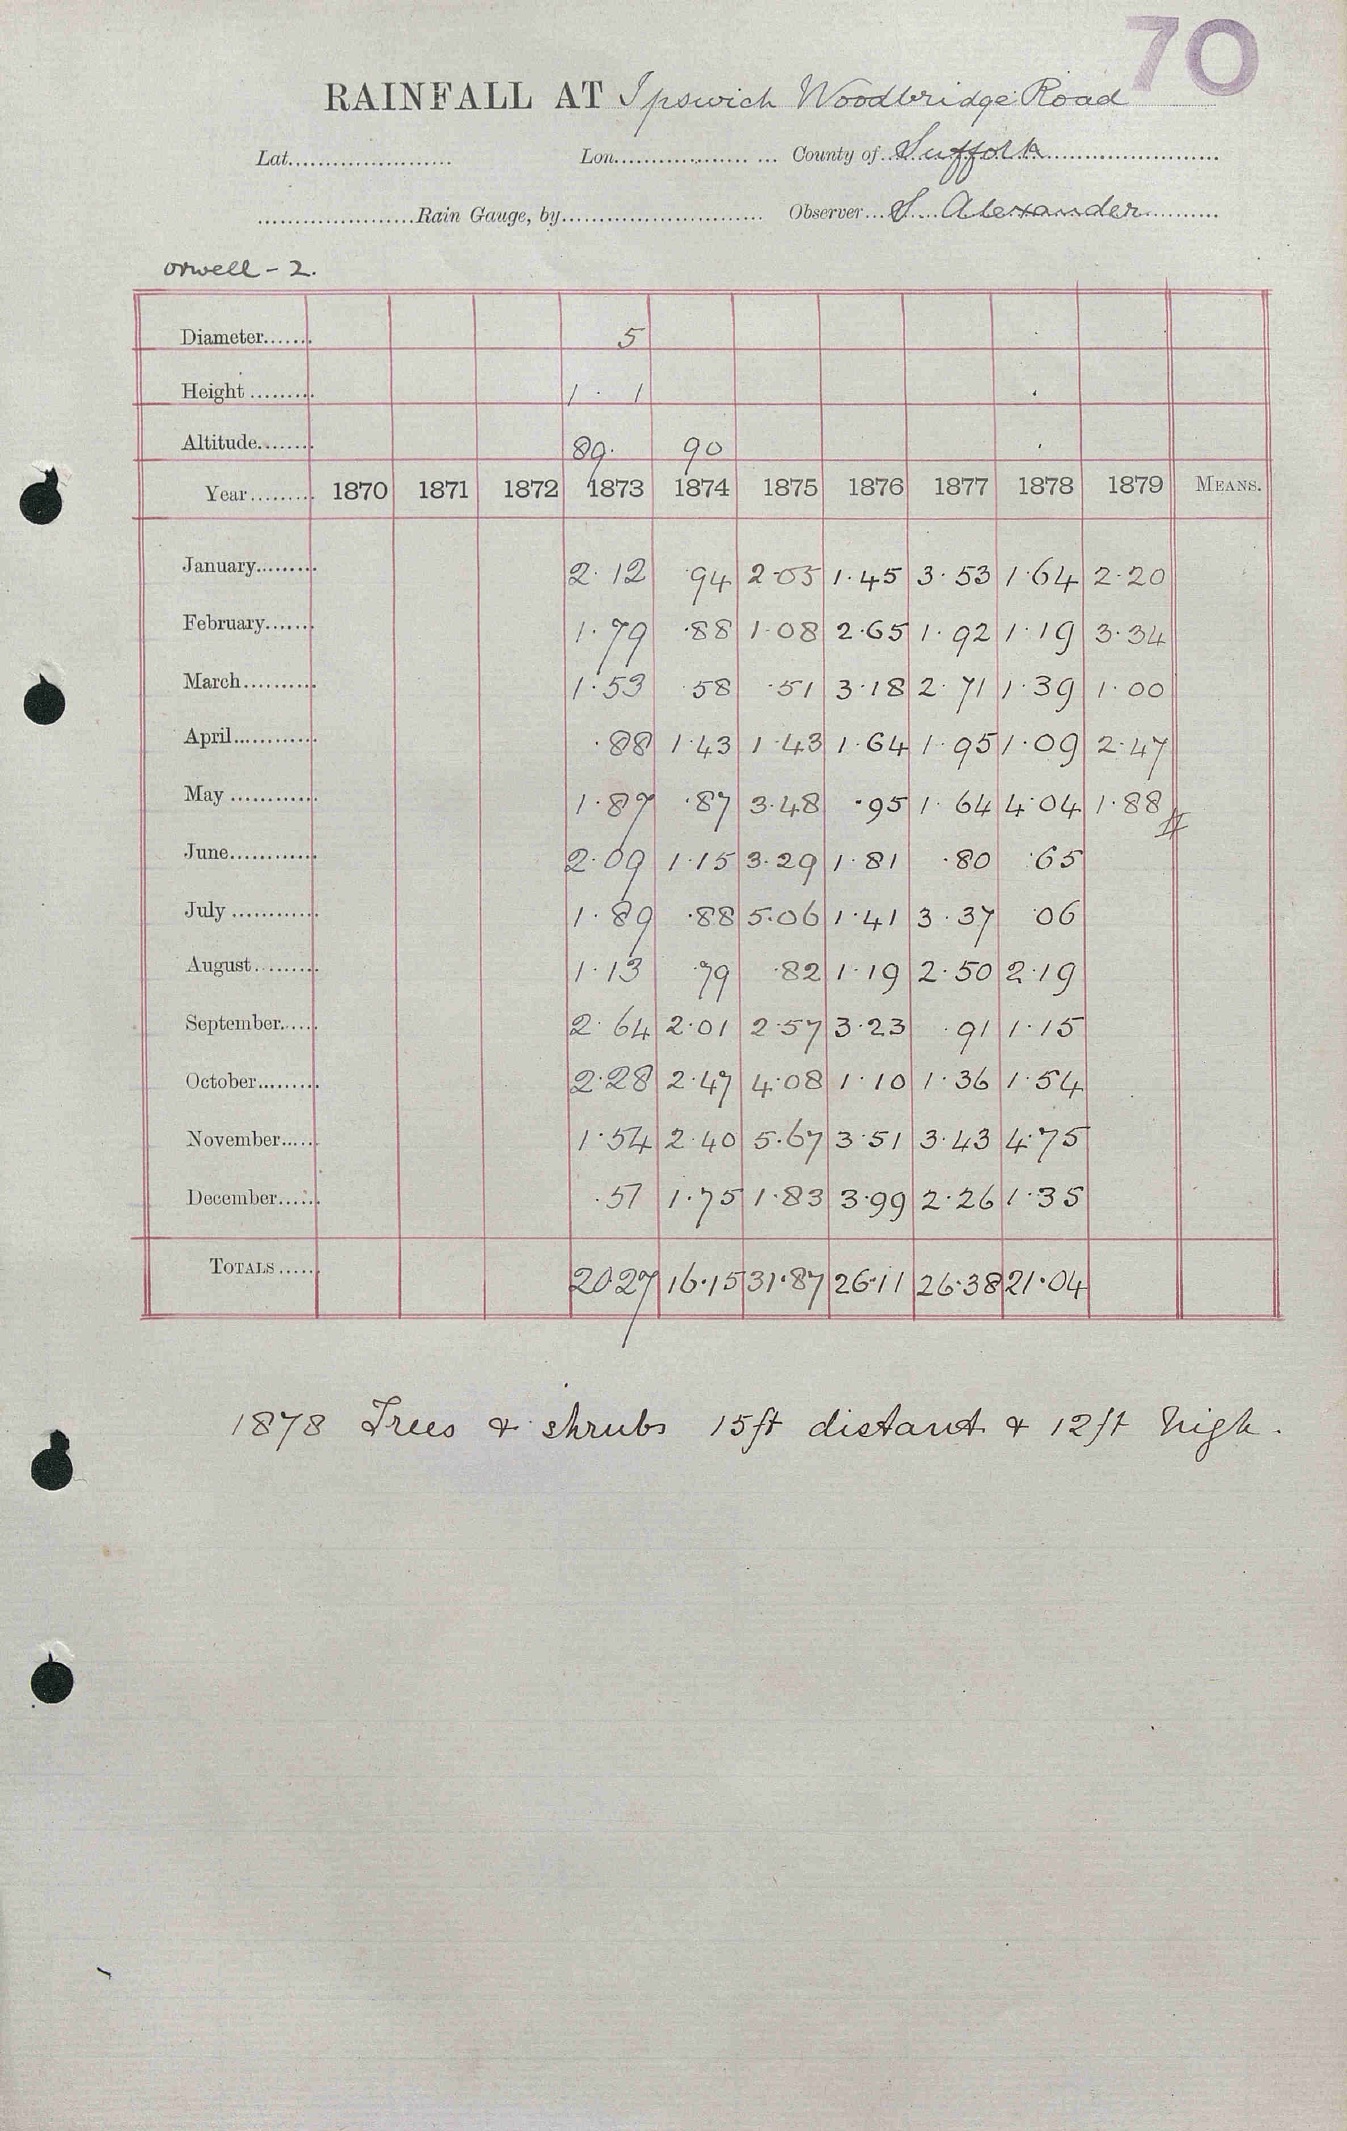 70
RAINFALL AT Ipswich Woodbridge Road
Lat. Lon. County of Suffolk
Rain Gauge, by Observer S Alexander
orwell - 2.
Diameter 5
Height 1 · 1
Altitude 89. 90
Year 1870 1871 1872 1873 1874 1875 1876 1877 1878 1879 MEANS.
January 2·12 ·94 2·05 1·45 3·53 1·64 2·20
February 1·79 ·88 1·08 2·65 1·92 1·19 3·34
March 1·53 ·58 ·51 3·18 2·71 1·39 1·00
April ·88 1·43 1·43 1·64 1·95 1·09 2·47
May 1·87 ·87 3·48 ·95 1·64 4·04 1·88
June 2·09 1·15 3·29 1·81 ·80 ·65
July 1·89 ·88 5·06 1·41 3·37 ·06
August 1·13 ·79 ·82 1·19 2·50 2·19
September 2·64 2·01 2·57 3·23 ·91 1·15
October 2·28 2·47 4·08 1·10 1·36 1·54
November 1·54 2·40 5·67 3·51 3·43 4·75
December ·51 1·75 1·83 3·99 2·26 1·35
TOTALS 20·27 16·15 31·87 26·11 26·38 21·04
1878 Trees & shrubs 15ft distant & 12ft high.